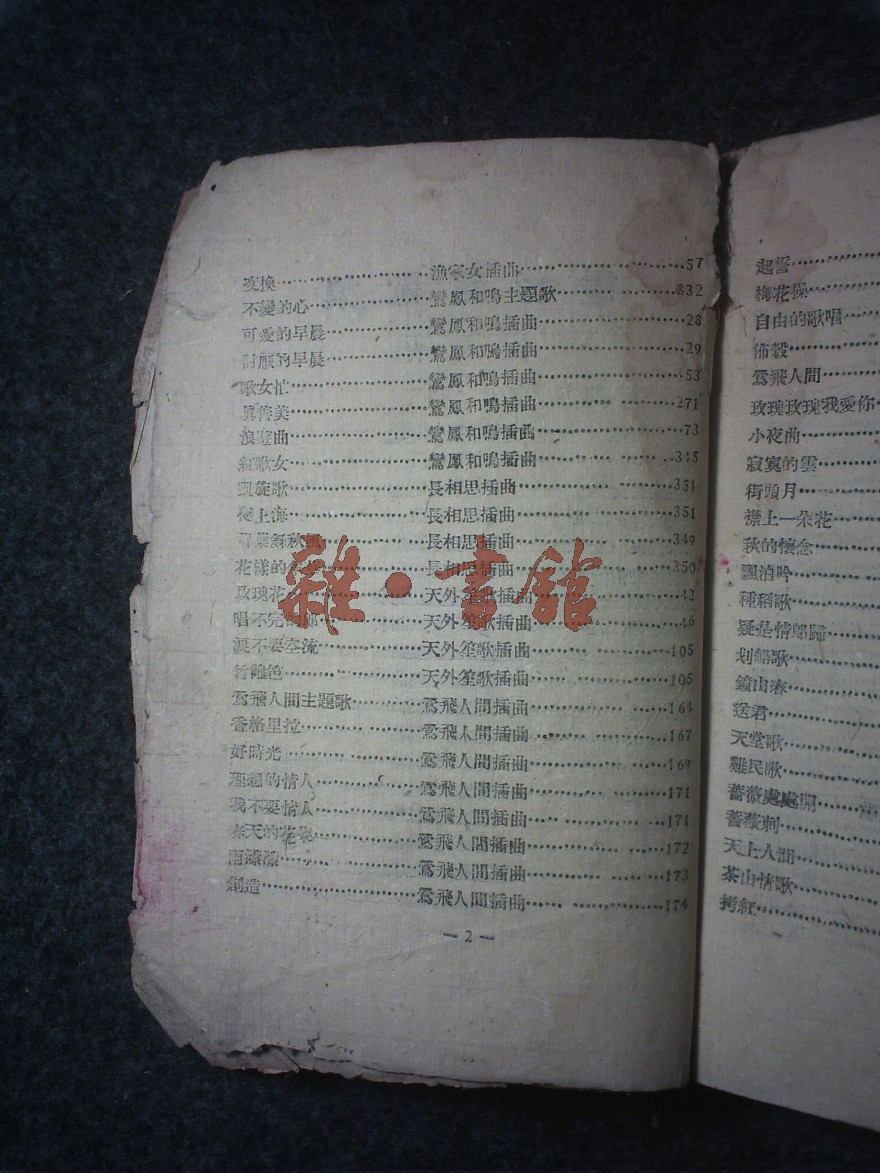 变換……………………漁家女插曲……………………57
不變的心……………………鸞鳳和鳴主題歌……………………332
可愛的早晨……………………鸞鳳和鳴插曲……………………28
討厭的早晨……………………鸞鳳和鳴插曲……………………29
歌女忙……………………鸞鳳和鳴插曲……………………53
眞善美……………………鸞鳳和鳴插曲……………………271
浪遊曲……………………鸞鳳和鳴插曲……………………73
歌女……………………鸞鳳和鳴插曲……………………345
凱旋歌……………………長相思插曲……………………351
上海……………………長相思插曲……………………351
秋……………………長相思插曲……………………349
花樣的……………………長相思插曲……………………350
玫瑰花……………………天外笙歌插曲……………………42
唱不完的……………………天外笙歌插曲……………………46
淚不要空流……………………天外笙歌插曲……………………105
竹籬笆……………………天外笙歌插曲……………………105
鶯飛人間主題歌……………………鶯飛人間插曲……………………164
香格里拉……………………鶯飛人間插曲……………………167
好時光……………………鶯飛人間插曲……………………169
理想的情人……………………鶯飛人間插曲……………………171
我不要情人……………………鶯飛人間插曲……………………171
春天的花……………………鶯飛人間插曲……………………172
雨濛濛……………………鶯飛人間插曲……………………173
創造……………………鶯飛人間插曲……………………174
—2—
雜·書館
起誓……………………
梅花操……………………
自由的歌唱……………………
佈穀……………………
鶯飛人間……………………
玫瑰玫瑰我愛你……………………
小夜曲……………………
寂寞的雲……………………
街頭月……………………
襟上一朵花……………………
秋的懷念……………………
飄泊吟……………………
種稻歌……………………
疑是情郎歸……………………
划船歌……………………
鐘山春……………………
送君……………………
天堂歌……………………
難民歌……………………
薔薇處處開……………………
薔薇刺……………………
天上人間……………………
茶山情歌……………………
拷紅……………………